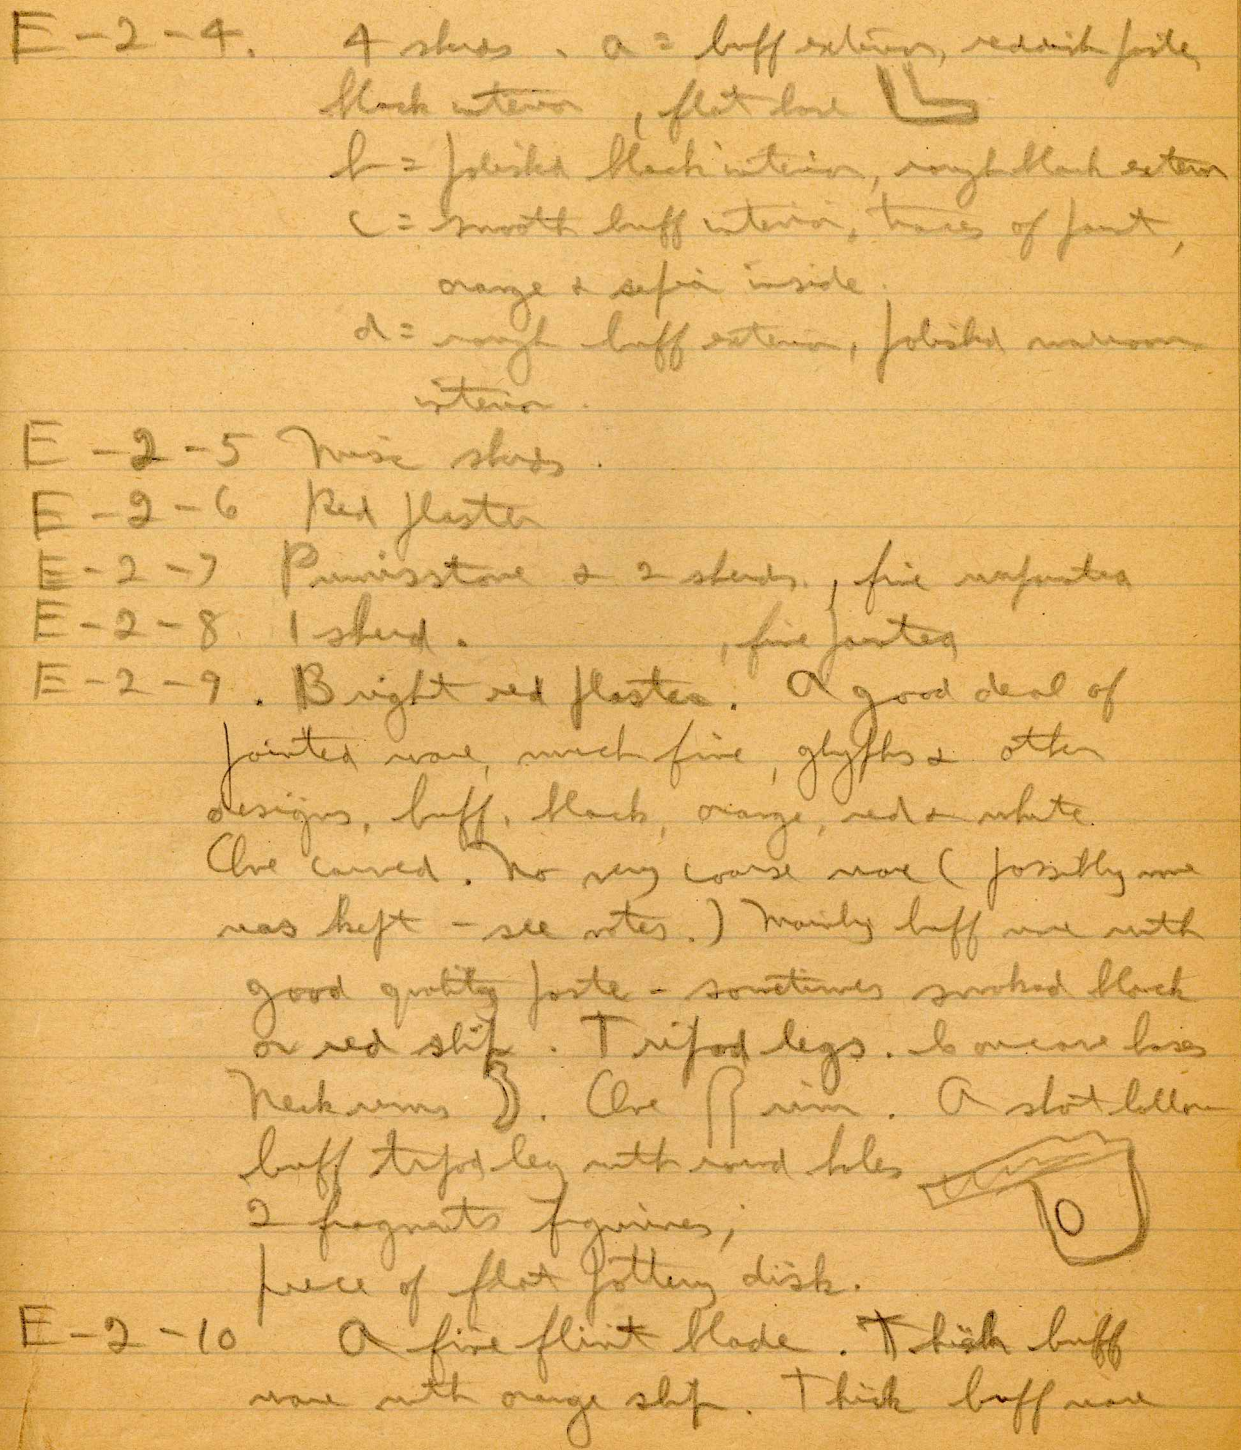 E-2-4. 4 sherds. a = buff exterior, reddish paste,
black interior, flat base
b = polished black interior, rough black exterior
c = smooth buff interior, traces of paint,
orange & sepia inside.
d = rough buff exterior, polished maroon
interior.
E-2-5 Misc sherds.
E-2-6 Red plaster
E-2-7 & 2 sherds, fine unpainted
E-2-8 1 sherd. , fine painted
E-2-9. Bright red plaster. A good deal of
painted ware, much fine, glyphs & other
designs, buff, black, orange, red & white.
One carved. No very coarse ware (possibly none
was kept - see notes.) Mainly buff ware with
good quality paste - sometimes smoked black
or red slip. Tripod legs. Concave bases
Neck rims. One rim. A short hollow
buff tripod leg with round holes
2 fragments figurines,
piece of flat pottery disk.
E-2-10 A fine flint blade. Thick buff
ware with orange slip. Thick buff ware